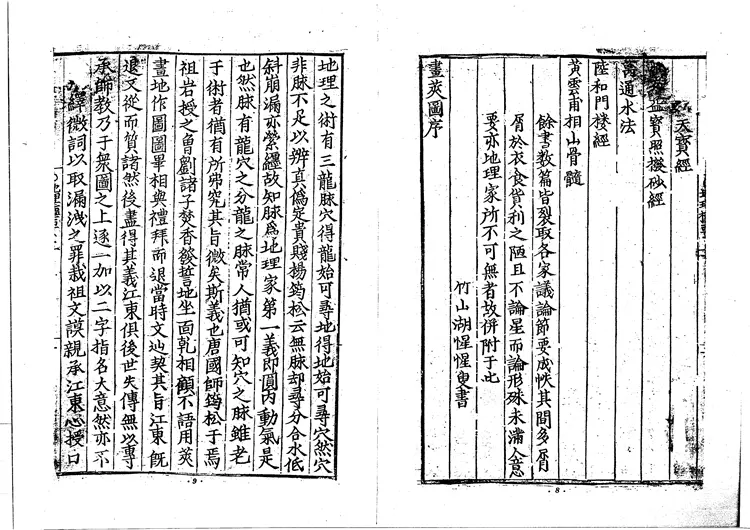 天寶經
寶照撥砂經
萬通水法
陸和門楼經
黃雲甫相山骨髓
餘書数篇皆裂取各家議論節要成帙其間多屑
屑於衣食貨利之陋且不論星而論形殊未滿人意
要亦地理家所不可無者故併附于此
竹山湖惺惺叟書
畫莢圖序
8
地理之術有三龍脉穴得龍始可尋地得地始可尋穴然穴
非脉不足以辨真僞定貴賤揚筠松云無脉却尋分合水低
斜崩漏亦縈纒故知脉爲地理家第一義即圓内動氣是
也然脉有龍穴之分龍之脉常人猶或可知穴之脉雖老
于術者猶有所弗究其旨微矣斯義也唐國師筠松于焉
祖岩授之曽劉諸子焚香發誓地坐面乾相顧不語用莢
畫地作圖圖畢相與禮拜而退當時文辿契其旨江東旣
退又從而質諸然後盡得其義江東俱後世失傳無以專
承師教乃于衆圖之上逐一加以二字指名大意然亦不
詳微詞以取漏洩之罪哉祖文謨親承江東心授口
9